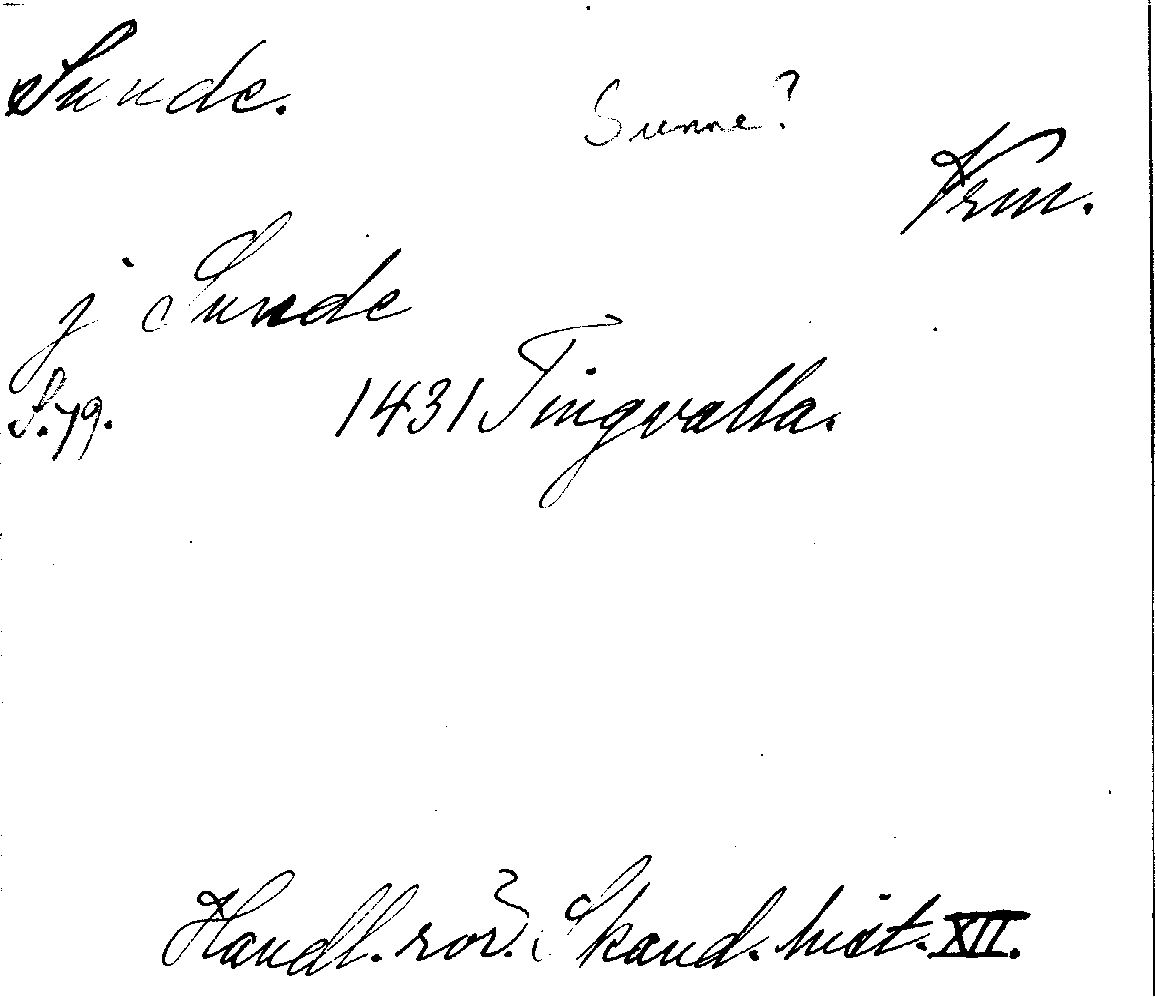 Sunde.
Sunne?
Vrm.
j Sunde
S. 79. 1431 Tingvalla.
Handl. rör. Skand. hist. XII.